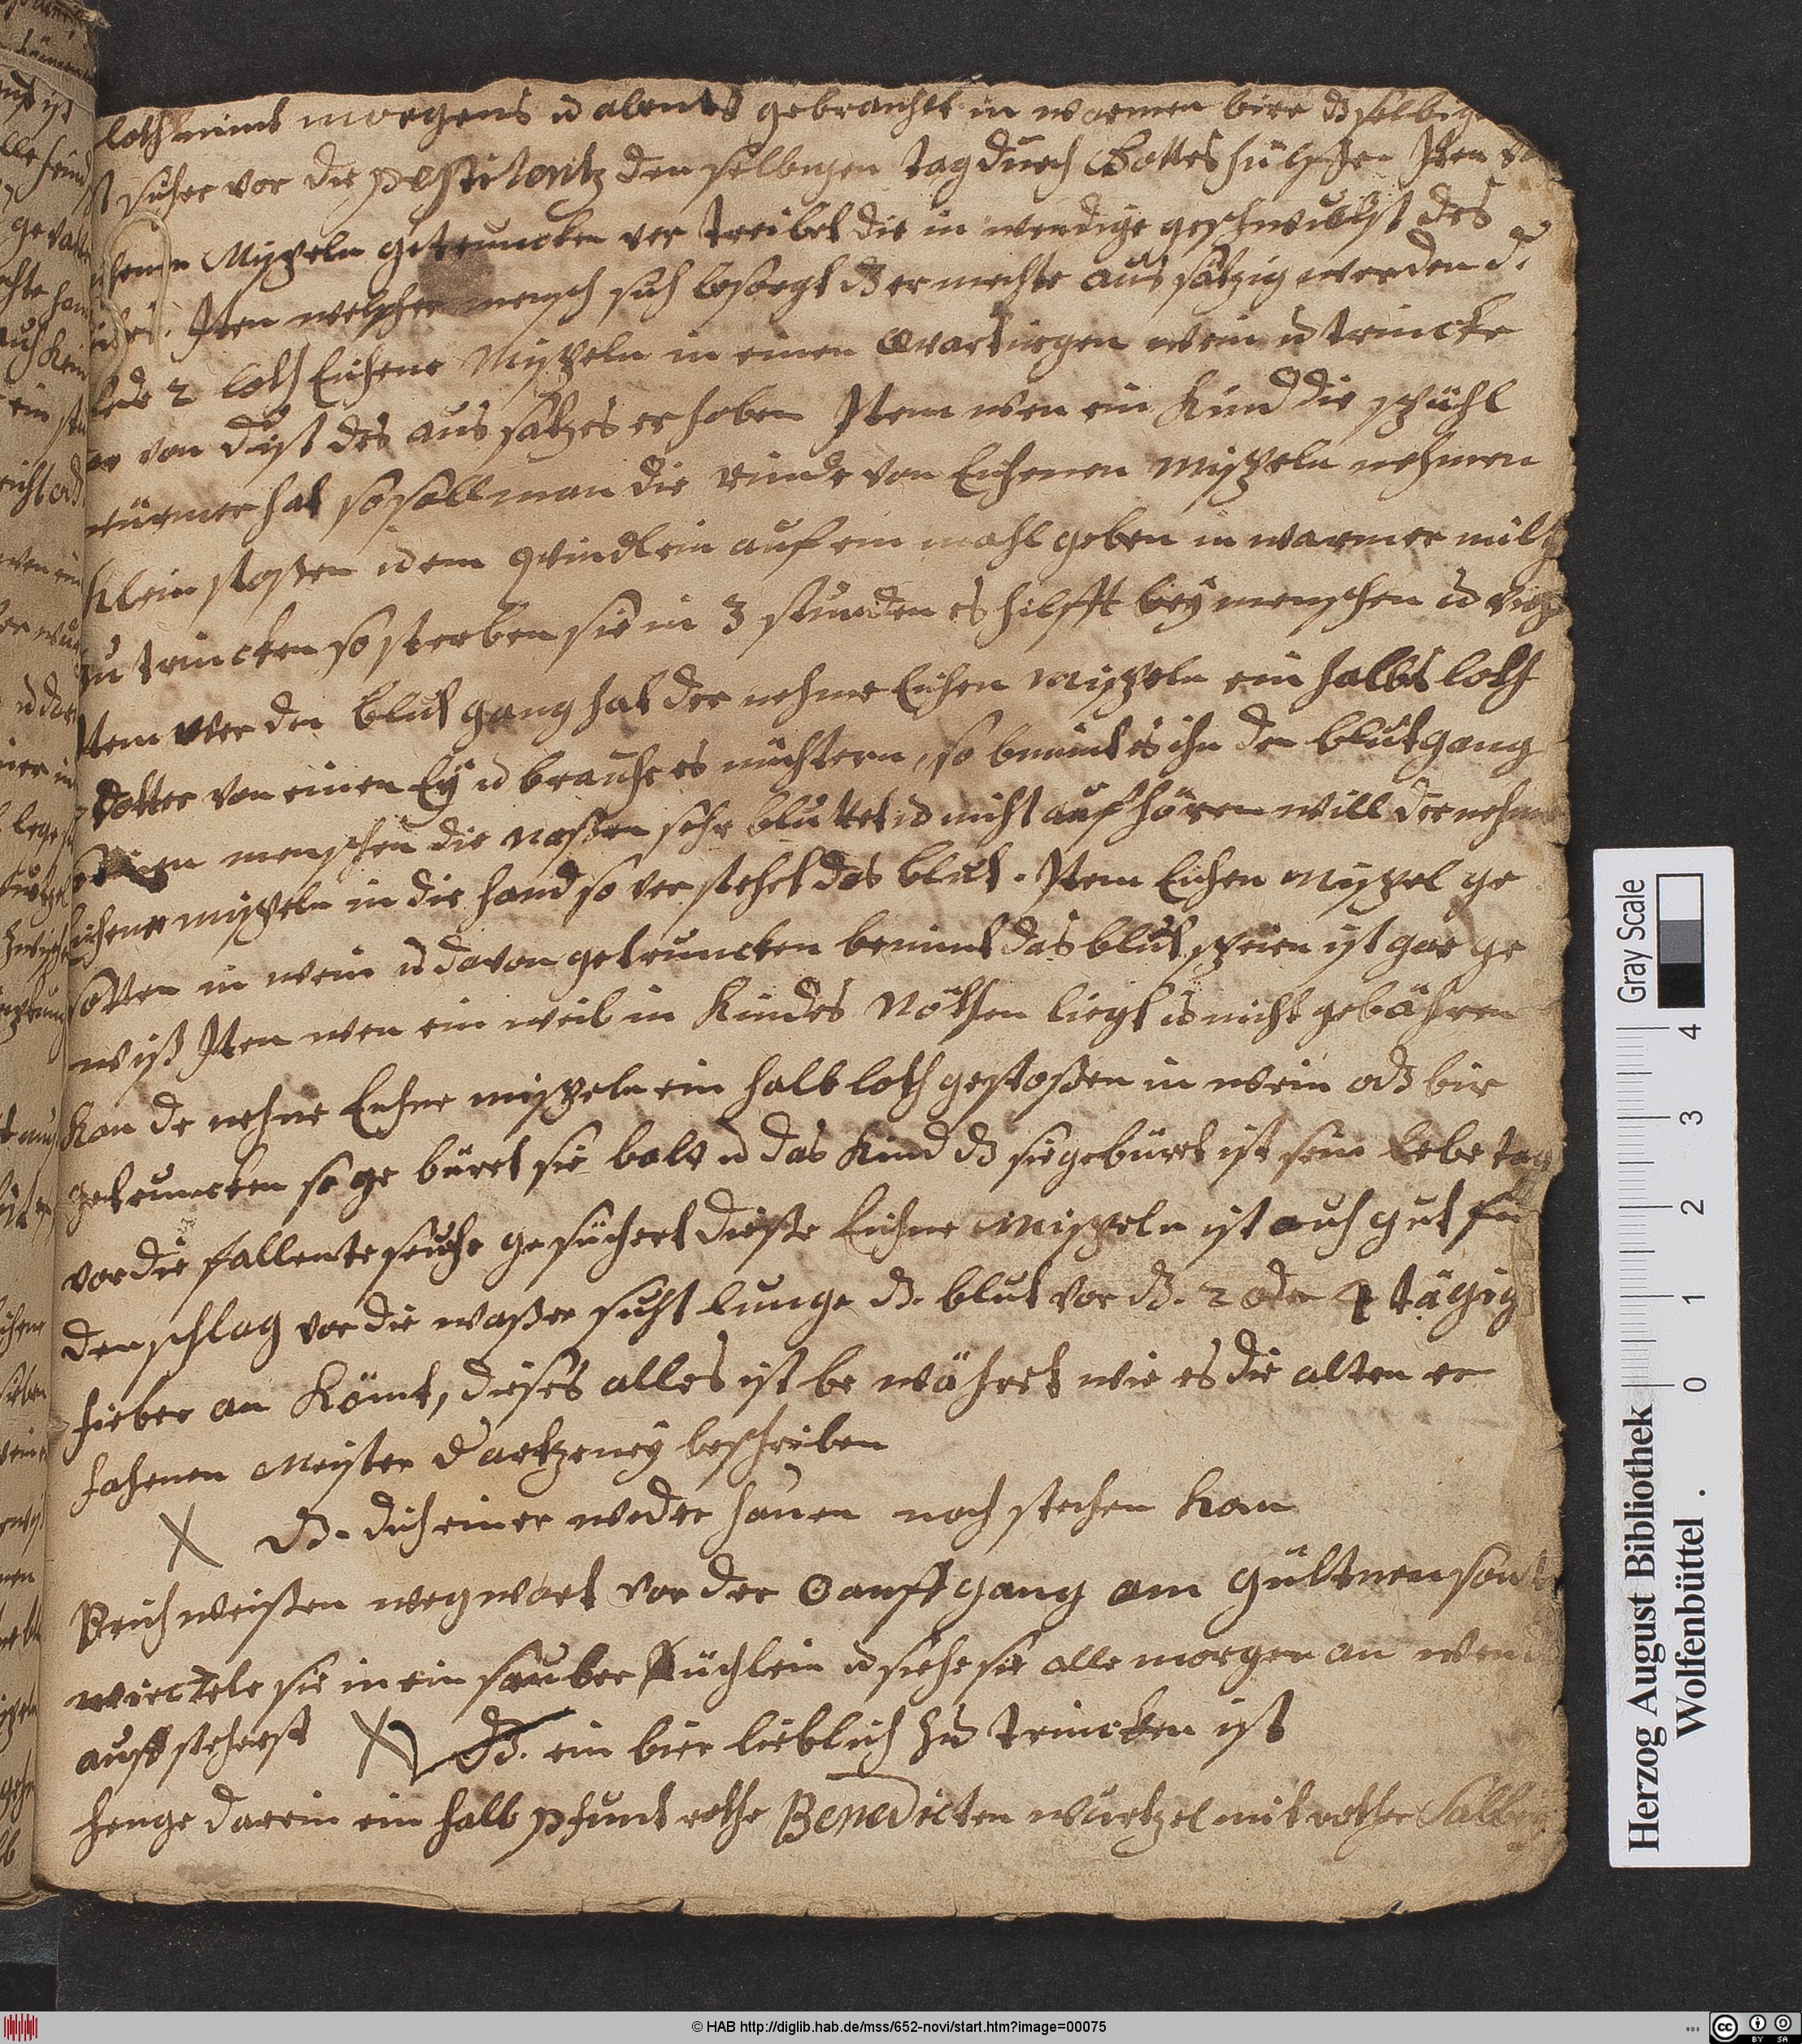 loth nimt morgens u abents gebraucht in warmen bier dz selbige
ist sicher vor die pestilentz den selbigen tag durch Gottes hülffe. Item
Mispeln getruncken ver treibet die in wendige geschwulst des
Item welcher mensch sich besorgt dz er mechte aus sätzig werden d.
2 loth Eichene Mispeln in einen Qvartirgen wein u trincke
er von dist des aus satzes erhoben Item wen ein Kind die spühl
würmer hat so soll man die rinde von Eichenen Mispeln nehmen
Klein stoßen u dem qvindlein auf ein mahl geben in warmer milch
zu trincken so sterben sie in 3 stunden es hilfft bey menschen u vieh
Item wer den blut gang hat der nehme Eichen Mispeln ein halbes loth
Dotter von einen Ey u brauche es nüchtern, so benimt es ihn den blutgang
menschen die naßen sehr bluttet u nicht auf hören will der nehme
Eichene mispeln in die hand so ver stehet das blut. Item Eichen Mispel ge
sotten in wein u davon getruncken benimt das blut speien ist gar ge
wiß Item wen ein weib in Kindes Nöthen liegt u nicht gebähren
Kan de nehme Eichne mispeln ein halb loth gestoßen in wein odr bir
getruncken so ge büret sie balt u das Kind dz sie gebürt ist sein Lebe tag
vor die fallente seuche ge sichert dieße Eichne Mispeln ist auch gut für
den schlag vor die waßer sucht lunge dz. blut vor dz. 2 oder 4 tägig
fieber an Kömt, dieses alles ist be währet wie es die alten er
fahrnen Meister d artzeney beschreiben
X dz. dich einer weder hauen noch stechen kan
Brich weißen wegwart vor der ☉ auffgang am gültnen sont
wirckele sie in ein sauber Tüchlein u siehe sie alle morgen an wen
auff stehest X dz. ein bier lieblich zu trincken ist
henge darein ein halb pfunt rothe Benedicten wurtzel mit rother Salbey
Gray Scale
4
3
2
1
0
Herzog August Bibliothek
Wolfenbüttel .
© HAB http://diglib.hab.de/mss/652-novi/start.htm?image=00075
CC BY SA